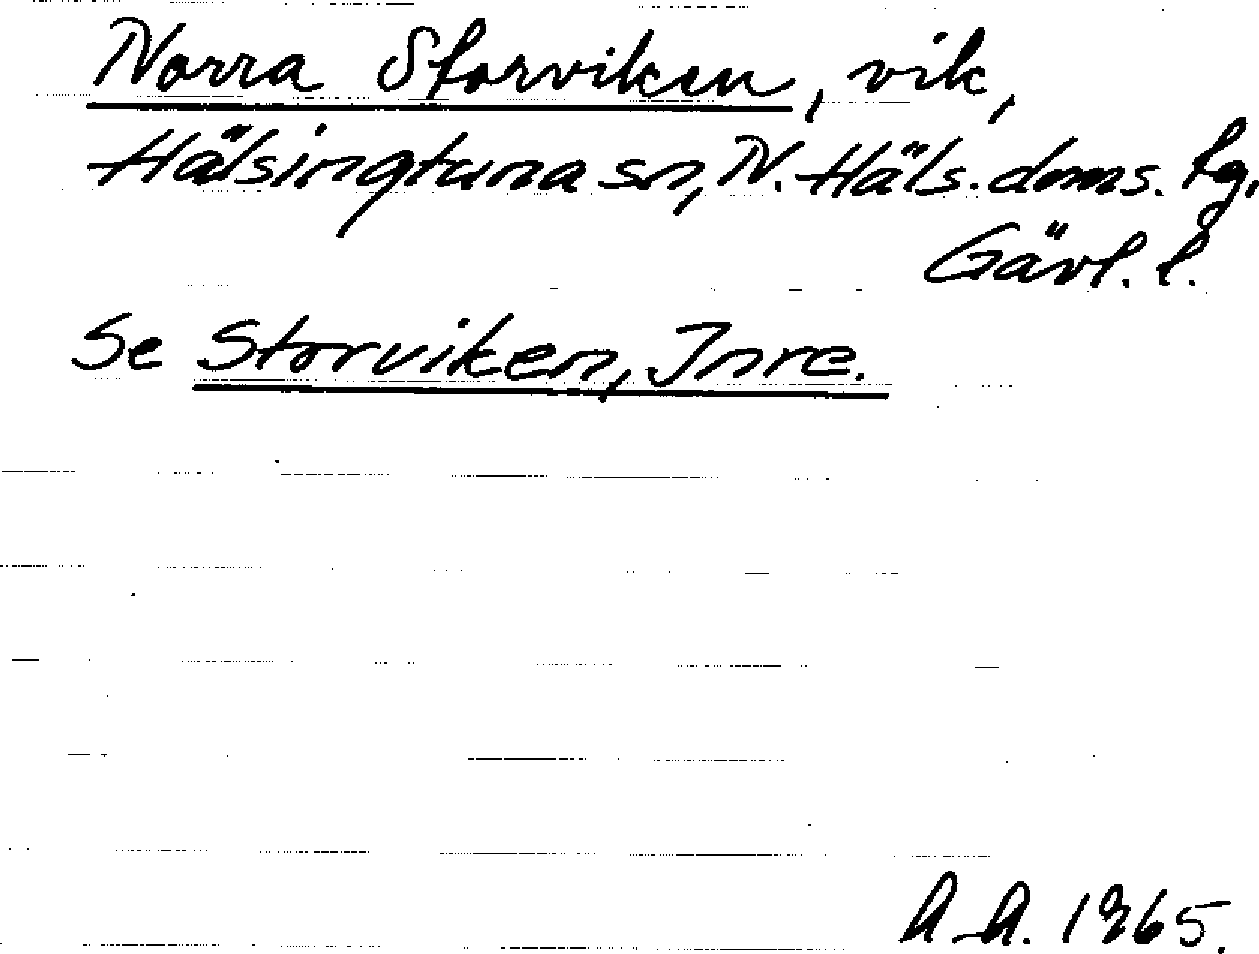 Norra Storviken, vik,
Hälsingtuna sn, N. Häls. doms. tg,
Gävl. l.
Se Storviken, Inre.
A.A. 1965.